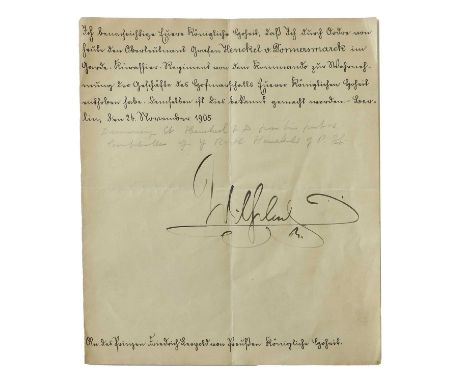 Ich benachrichtige Euere Königliche Hoheit, daß Ich durch Ordre von
heute den Oberleutnant Grafen Henckel v. Donnersmarck im
Garde-Kürassier-Regiment von dem Kommando zur Wahrneh-
mung der Geschäfte des Hofmarschalls Euerer Königlichen Hoheit
enthoben habe. Demselben ist dies bekannt gemacht worden. Ber-
lin, den 24. November 1905
Henckel v. D. from his post as
of Household of P.
Wilhelm
R.
An des Prinzen Friedrich Leopold von Preußen Königliche Hoheit.